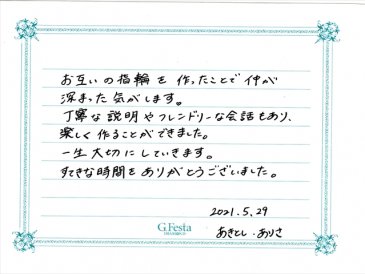 お互いの指輪を作ったことで仲が
深まった気がします。
丁寧な説明やフレンドリーな会話もあり、
楽しく作ることができました。
一生大切にしていきます。
すてきな時間をありがとうございました。
2021.5.29
G.Festa
あきとし・ありさ